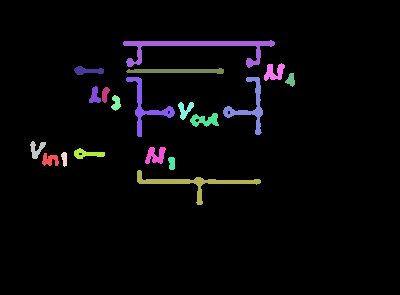 M4
M3
Vout
Vin1
M1